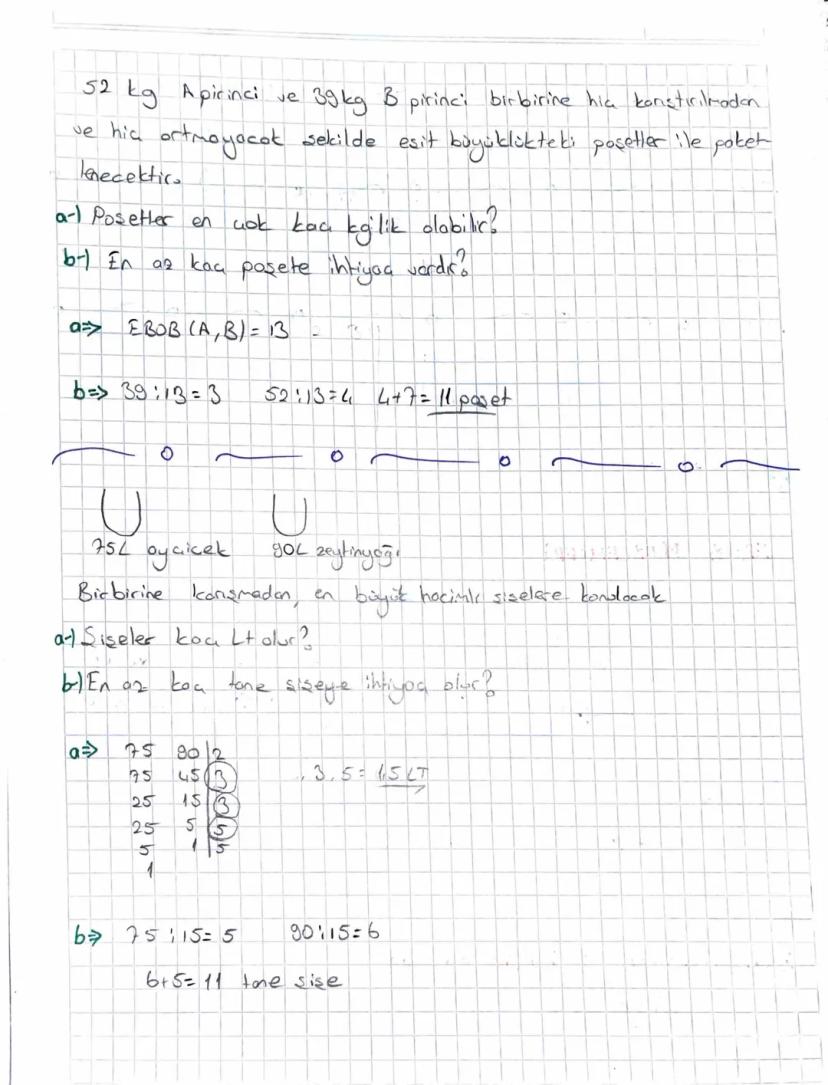 52 kg A pirinci ve 39 kg B pirinci birbirine hiç karıştırılmadan
ve hiç artmayacak şekilde eşit büyüklükteki poşetler ile paket
lenecektir.
a-) Poşetler en çok kaç kg'lik olabilir?
b-) En az kaç poşete ihtiyaç vardır?
a⇒ EBOB (A,B) = 13
b⇒ 39:13=3 52:13=4 4+7= 11 poşet
75L ayçiçek 90L zeytinyağı
Birbirine karışmadan, en büyük hacimli şişelere konulacak
a-) Şişeler kaç Lt olur?
b-) En az kaç tane şişeye ihtiyaç olur?
a⇒ 75 90 | 2
75 45 | 3 . 3.5 = 15 LT
25 15 | 3
25 5 | 5
5 1 | 5
1
b⇒ 75:15= 5 90:15=6
6+5=11 tane şişe